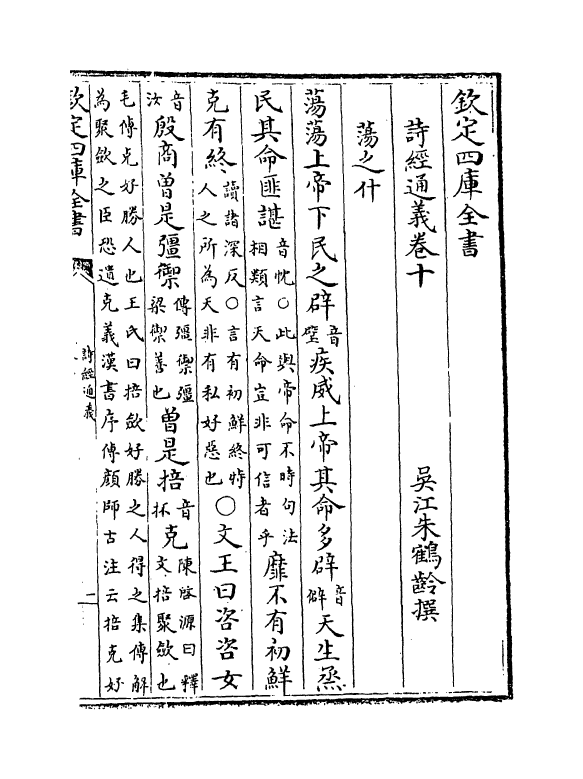 欽定四庫全書
詩經通義卷十　吳江朱鶴齡撰
蕩之什
蕩蕩上帝下民之辟音璧疾威上帝其命多辟音僻天生烝
民其命匪諶音忱○此與帝命不時句法相類言天命豈非可信者乎靡不有初鮮
克有終讀諸深反○言有初鮮終特人之所為天非有私好惡也○文王曰咨咨女
音汝殷商曾是彊禦傳彊禦彊梁禦善也曾是掊音抔克陳啓源曰釋文掊聚歛也
毛傳克好勝人也王氏曰掊歛好勝之人得之集傳解
為聚歛之臣恐遺克義漢書序傳顔師古注云掊克好
欽定四庫全書
詩經通義
一